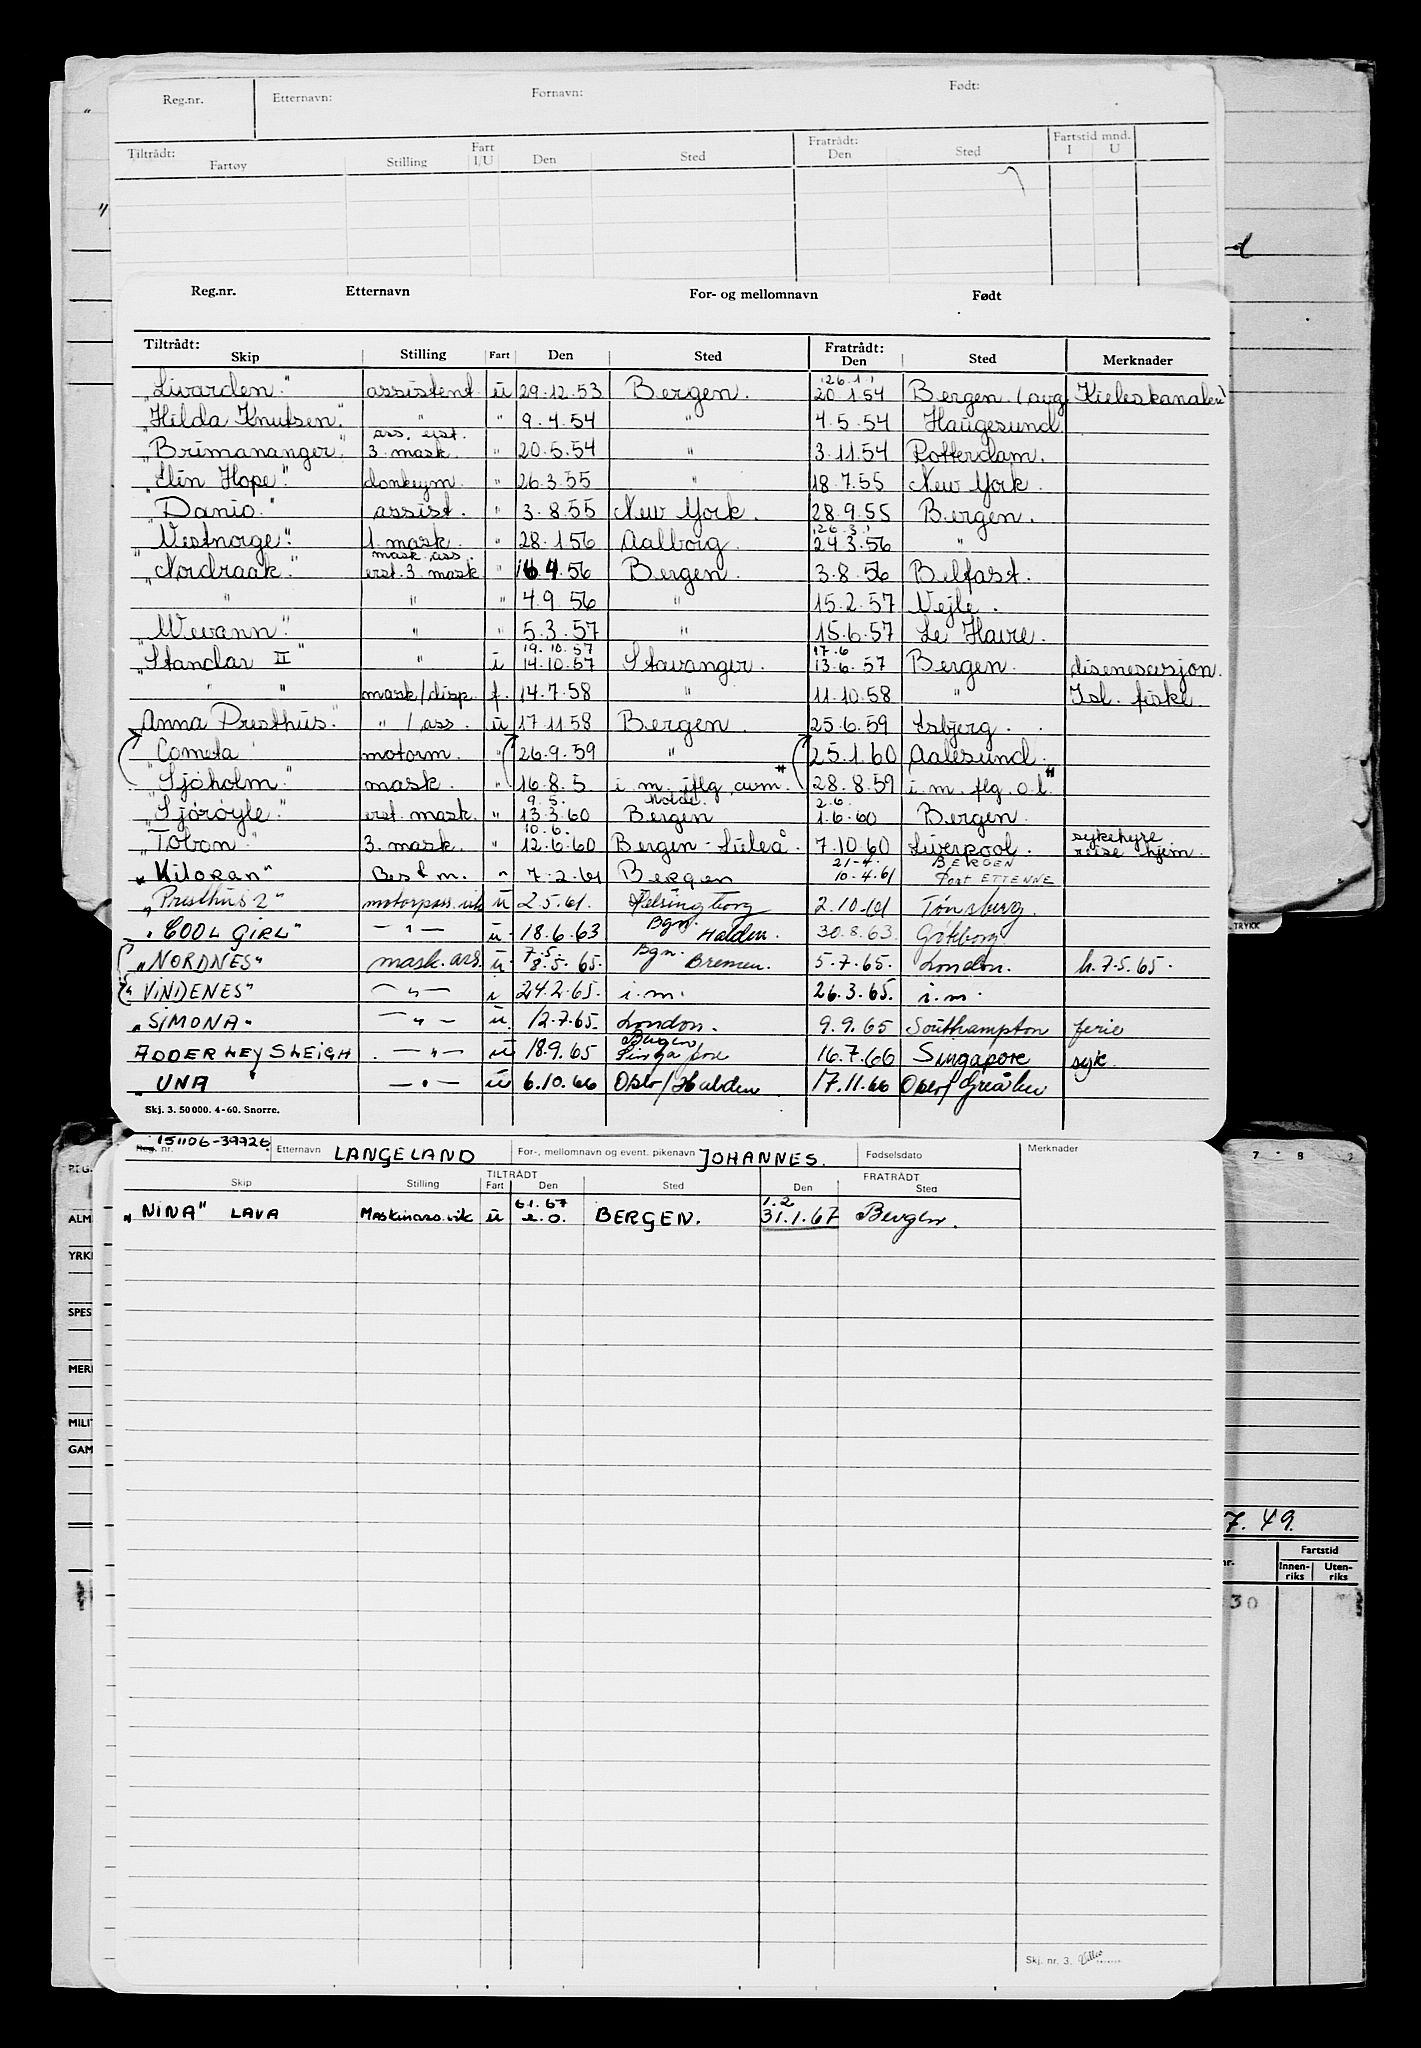 Reg.nr. Etternavn: Fornavn: Født:
Tiltrådt: Fratrådt: Fartstid mnd.
Fartøy Stilling Fart I/U Den Sted Den Sted I U
Reg.nr. Etternavn For- og mellomnavn Født
Tiltrådt: Fratrådt:
Skip Stilling Fart Den Sted Den Sted Merknader
26.1
"Livarden" assistent u 29.12.53 Bergen. 20.1.54 Bergen (avg. Kielerkanalen)
"Hilda Knutsen" " " 9.4.54 " 4.5.54 Haugesund
ass. erst.
"Brimananger" 3. mask. " 20.5.54 " 3.11.54 Rotterdam.
"Elin Hope" donkeym. " 26.3.55 " 18.7.55 New York.
"Danio" assist. " 3.8.55 New York. 28.9.55 Bergen.
26.3
"Vestnorge" 1. mask. " 28.1.56 Aalborg. 24.3.56 "
mask. ass.
"Nordraak" erst. 3. mask " 16.4.56 Bergen. 3.8.56 Belfast.
" " " 4.9.56 " 15.2.57 Vejle.
"Wevann" " " 5.3.57 " 15.6.57 Le Havre.
19.10.57 17.6
"Standar II" " i 14.10.57 Stavanger. 13.6.57 Bergen. dispensasjon
" " mask/disp. f. 14.7.58 " 11.10.58 " Isl. fiske
"Anna Presthus" " / ass. u 17.11.58 Bergen 25.6.59 Esbjerg.
"Cometa" motorm. " 26.9.59 " 25.1.60 Aalesund.
"Sjøholm" mask. " 16.8.5 i. m. iflg. avm. 28.8.59 i. m. flg. o.l.
9.5. Molde. 2.6.
"Sjørøyle" erst. mask. " 13.3.60 Bergen 1.6.60 Bergen.
10.6. sykehyre
"Tobon" 3. mask. " 12.6.60 Bergen - Luleå. 7.10.60 Liverpool. reise hjem.
21-4. BERGEN
"Kiloran" Best m. " 7-2.61 Bergen 10-4.61 Port ETTENNE
"Presthus 2" motorpass. vik u 2.5.61. Helsingborg 2.10.61 Tønsberg.
"COOL GIRL" — " — u. 18.6.63 Bgn. Halden. 30.8.63. Gøteborg
7.5.
"NORDNES" mask. ass. u. 8.5.65. Bgn. Bremen. 5.7.65. London. h. 7.5.65.
"VINDENES" — " — i 24.2.65. i.m. 26.3.65. i.m.
"SIMONA" — " — u. 12.7.65. London. 9.9.65 Southampton ferie
Bergen
ADDERLEY SLEIGH — " — u 18.9.65 Singapore 16.7.66 Singapore syk.
"UNA" — " — u 6.10.66 Oslo/Halden 17.11.66 Oslo/Greåker
Skj. 3. 50 000. 4-60. Snorre.
TRYKK
Reg. nr. 151106-39926 Etternavn LANGELAND For-, mellomnavn og event. pikenavn JOHANNES. Fødselsdato Merknader
TILTRÅDT FRATRÅDT
Skip Stilling Fart Den Sted Den Sted
6.1.67 1.2
"NINA" LAVA Maskinass.vik u e.o. BERGEN. 31.1.67 Bergen.
Skj. nr. 3.
REG.
ALM
YRK
SPES
MERK
MILIT
GAM
7 8
7.49.
nr. Fartstid
Innen-riks Uten-riks
30